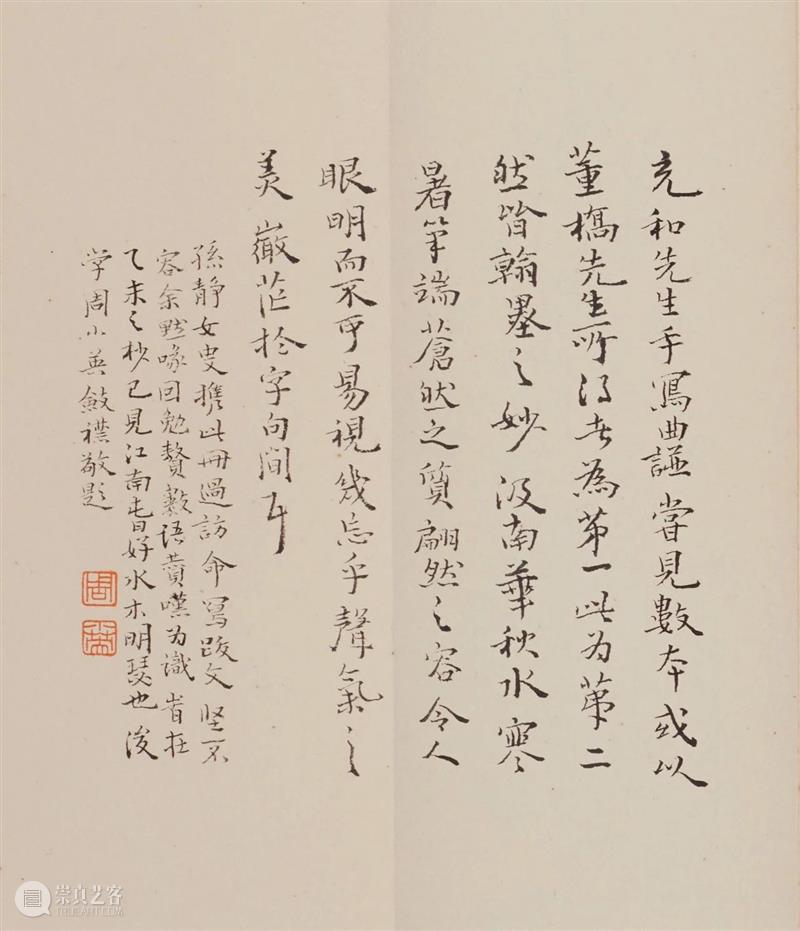 充和先生手寫曲譜嘗見數本或以
董橋先生所得者為第一此为第二
然皆翰墨之妙汲南華秋水寒
暑筆端蒼然之質翩然之容令人
眼明而不可易視幾忘乎聲氣之
美嶶茫於字句間耳
孫靜女史携此冊過訪命寫跋文坚不
容余默喙因勉贅數语賁嘆为識者在
乙未之杪已見江南屯好水木明瑟也後
学周小英斂襟敬題
周
英
崇真艺客
TRUEART.COM